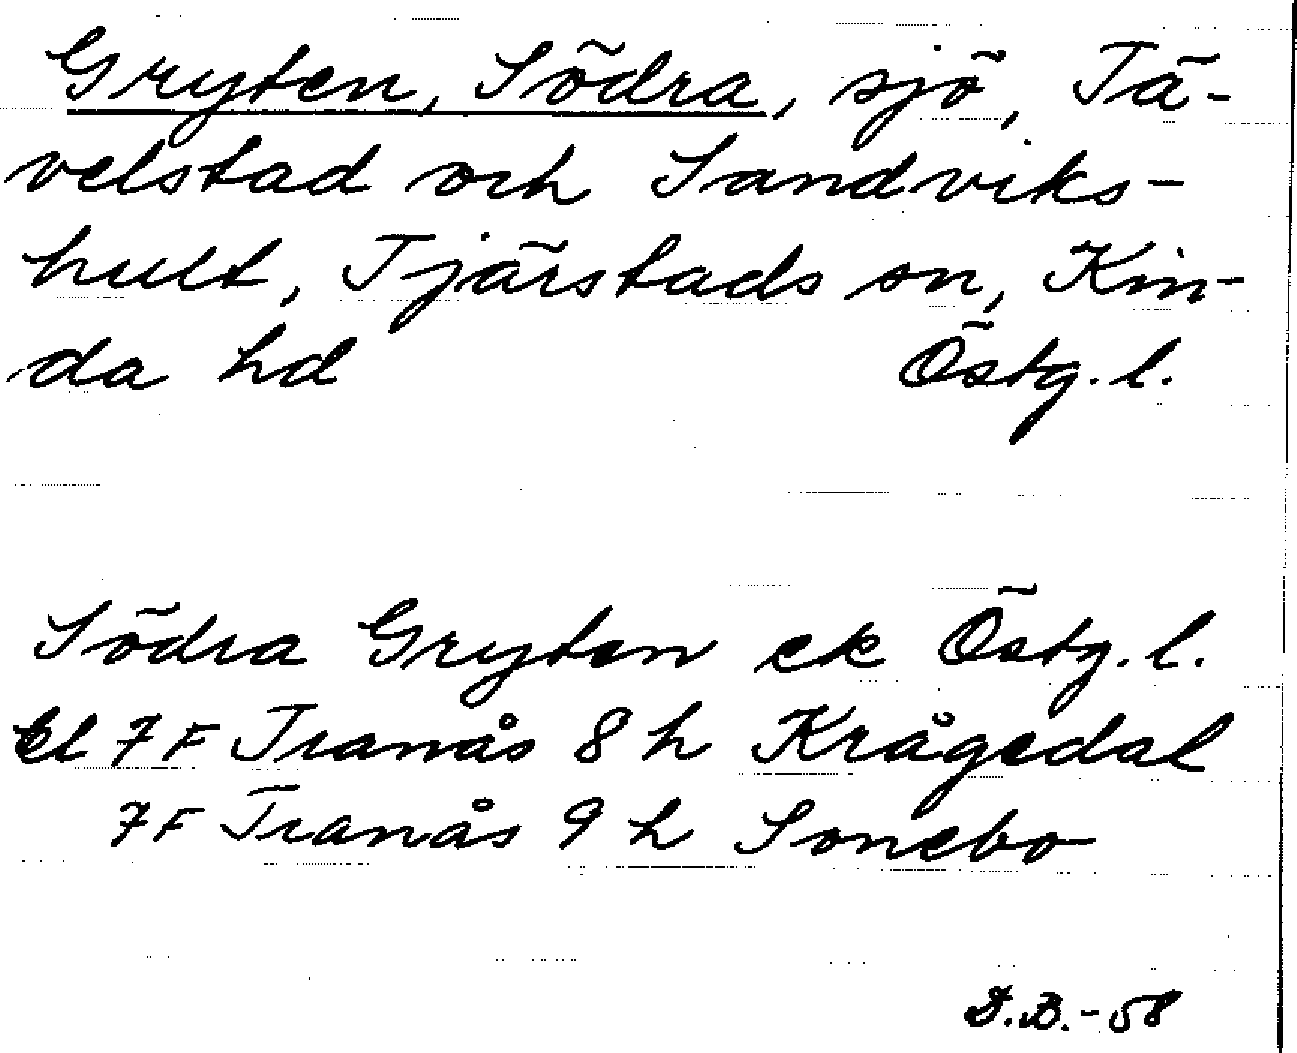 Gryten, Södra, sjö, Tä-
velstad och Sandviks-
hult, Tjärstads sn, Kin-
da hd Östg. l.
Södra Gryten ek Östg. l.
bl 7F Tranås 8 h Krågedal
7F Tranås 9 h Sonebo
D.B.-58